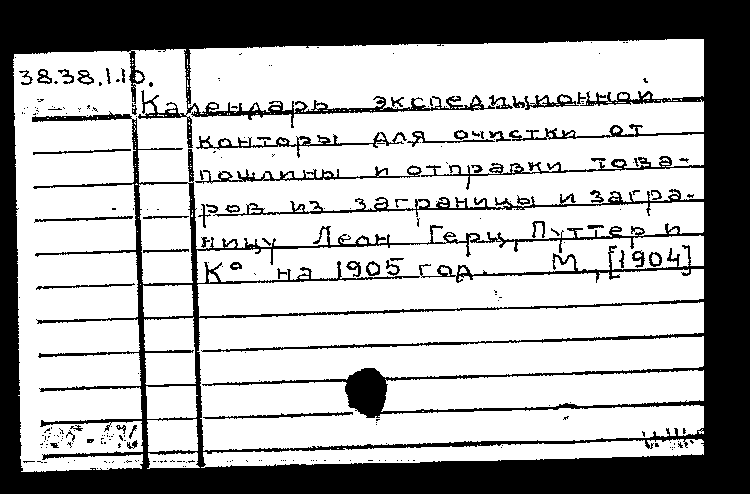 38.38.1.10.
Календарь экспедиционной
конторы для очистки от
пошлины и отправки това-
ров из заграницы и загра-
ницу Леон Герц, Путтер и
Кº на 1905 год. М., [1904]